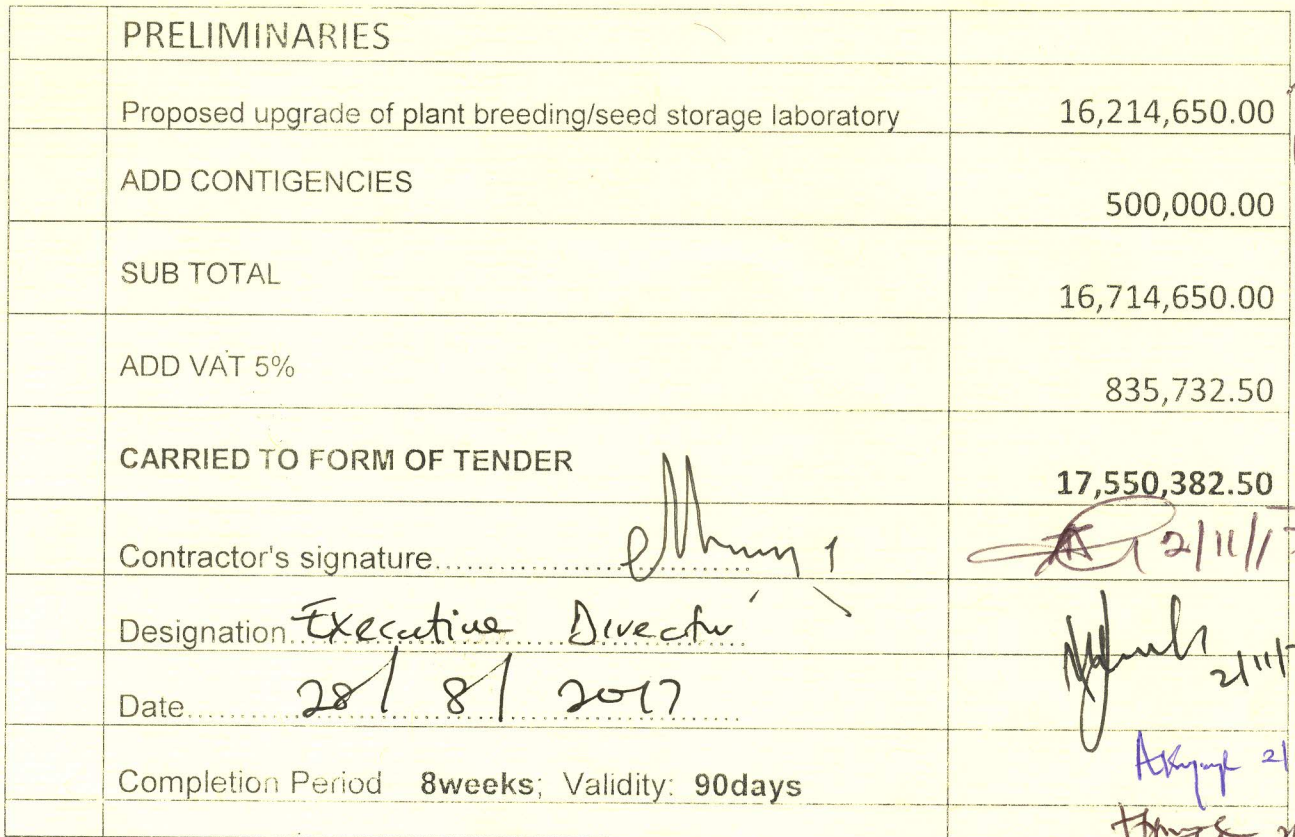 PRELIMINARIES
Proposed upgrade of plant breeding/seed storage laboratory 16,214,650.00
ADD CONTIGENCIES 500,000.00
SUB TOTAL 16,714,650.00
ADD VAT 5% 835,732.50
CARRIED TO FORM OF TENDER 17,550,382.50
Contractor's signature.................................. 2/11/17
Designation Executive Director 2/11/
Date 28/8/2017
Completion Period 8weeks; Validity: 90days